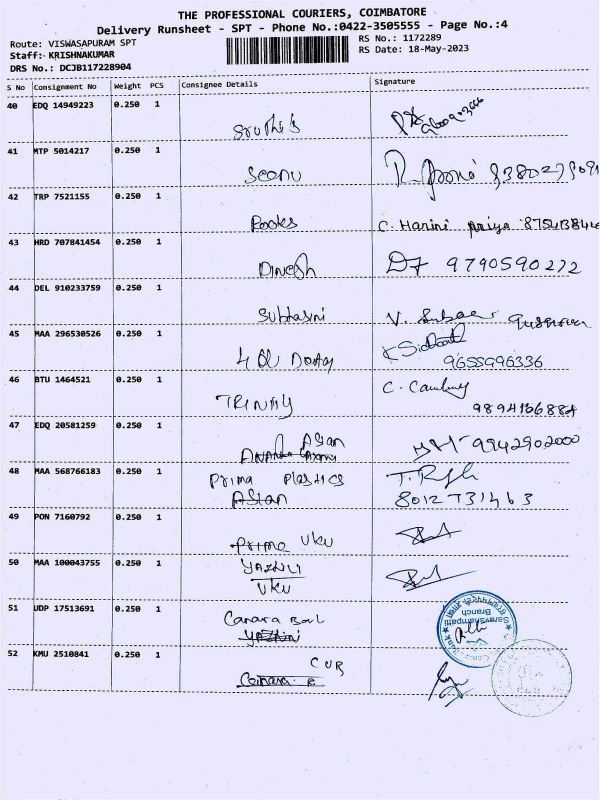 THE PROFESSIONAL COURIERS, COIMBATORE
Delivery Runsheet - SPT - Phone No.:0422-3505555 - Page No.:4
Route: VISWASAPURAM SPT
RS No.: 1172289
Staff: KRISHNAKUMAR
RS Date: 18-May-2023
DRS No.: DCJB117228904
S No Consignment No Weight PCS Consignee Details Signature
40 EDQ 14949223 0.250 1
Sruthi S
41 MTP 5014217 0.250 1
Seenu
42 TRP 7521155 0.250 1
Books C. Harini Priya
43 HRD 707841454 0.250 1
Dinesh 9790590272
44 DEL 910233759 0.250 1
Subhasni V.
45 MAA 296530526 0.250 1
9655996336
46 BTU 1464521 0.250 1
TRINITY C.
9894166884
47 EDQ 20581259 0.250 1
Asian
9942902000
48 MAA 568766183 0.250 1
Prima Plastics
Asian 8012731463
49 PON 7160792 0.250 1
Prima VKV
50 MAA 100043755 0.250 1
Yazhini
VKV
51 UDP 17513691 0.250 1
Canara Bank
Yazhini
Saravanampatti
Branch
52 KMU 2510841 0.250 1
CUB
Canara B